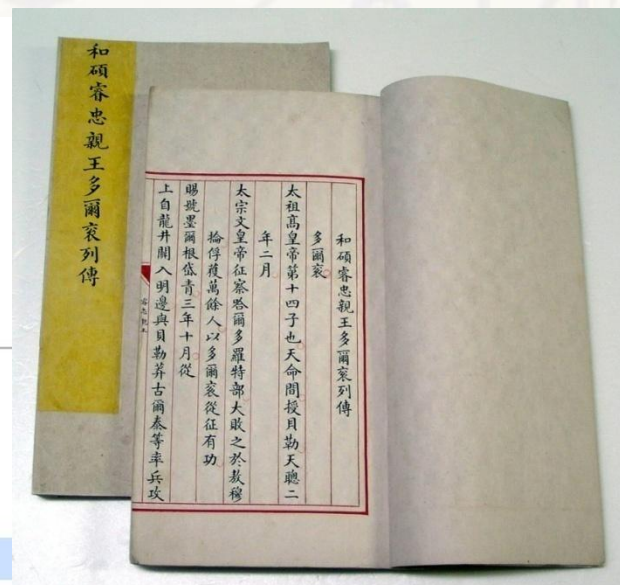 和碩睿忠親王多爾袞列傳
和碩睿忠親王多爾袞列傳
多爾袞
太祖高皇帝第十四子也天命間授貝勒天聰二
年二月
太宗文皇帝征察哈爾多羅特部大敗之於敖穆
掄俘獲萬餘人以多爾袞從征有功
賜號墨爾根岱青三年十月從
上自龍井關入明邊與貝勒莽古爾泰等率兵攻
睿忠親王